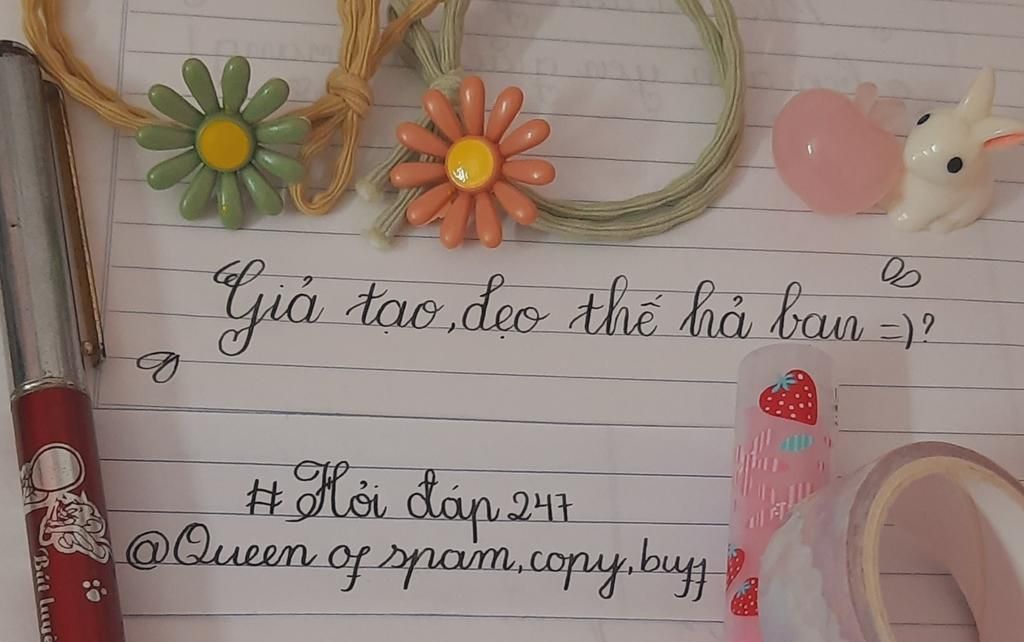 Giả tạo, dẹo thế hả bạn =)?
# Hỏi đáp 247
@Queen of spam, copy, buff
Bút luyện